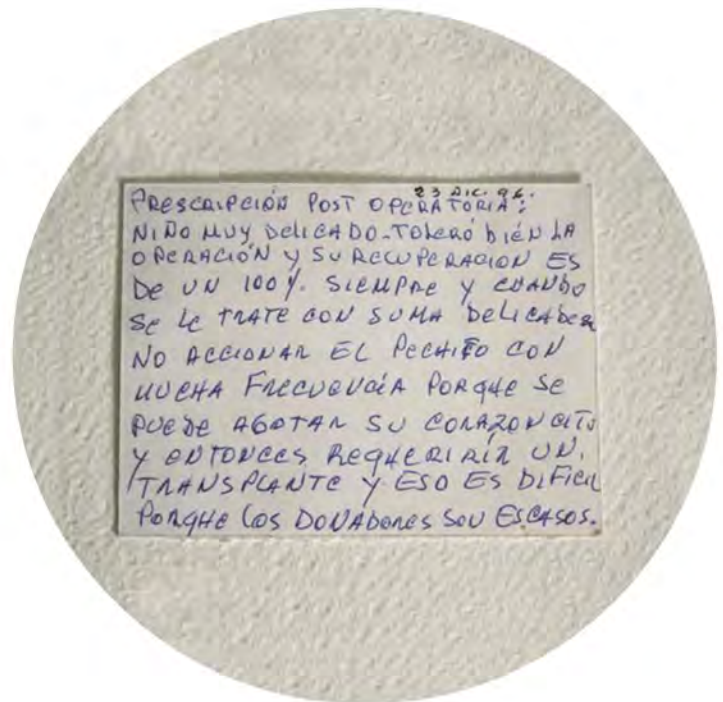 23 DIC. 96.
PRESCRIPCIÓN POST OPERATORIA:
NIÑO MUY DELICADO-TOLERÓ BIÉN LA
OPERACIÓN Y SU RECUPERACION ES
DE UN 100%. SIEMPRE Y CUANDO
SE LE TRATE CON SUMA DELICADEZA
NO ACCIONAR EL PECHITO CON
MUCHA FRECUENCIA PORQUE SE
PUEDE AGOTAR SU CORAZONCITO
Y ENTONCES REQUERIRÍA UN.
TRANSPLANTE Y ESO ES DIFICIL
PORQUE LOS DONADORES SON ESCASOS.